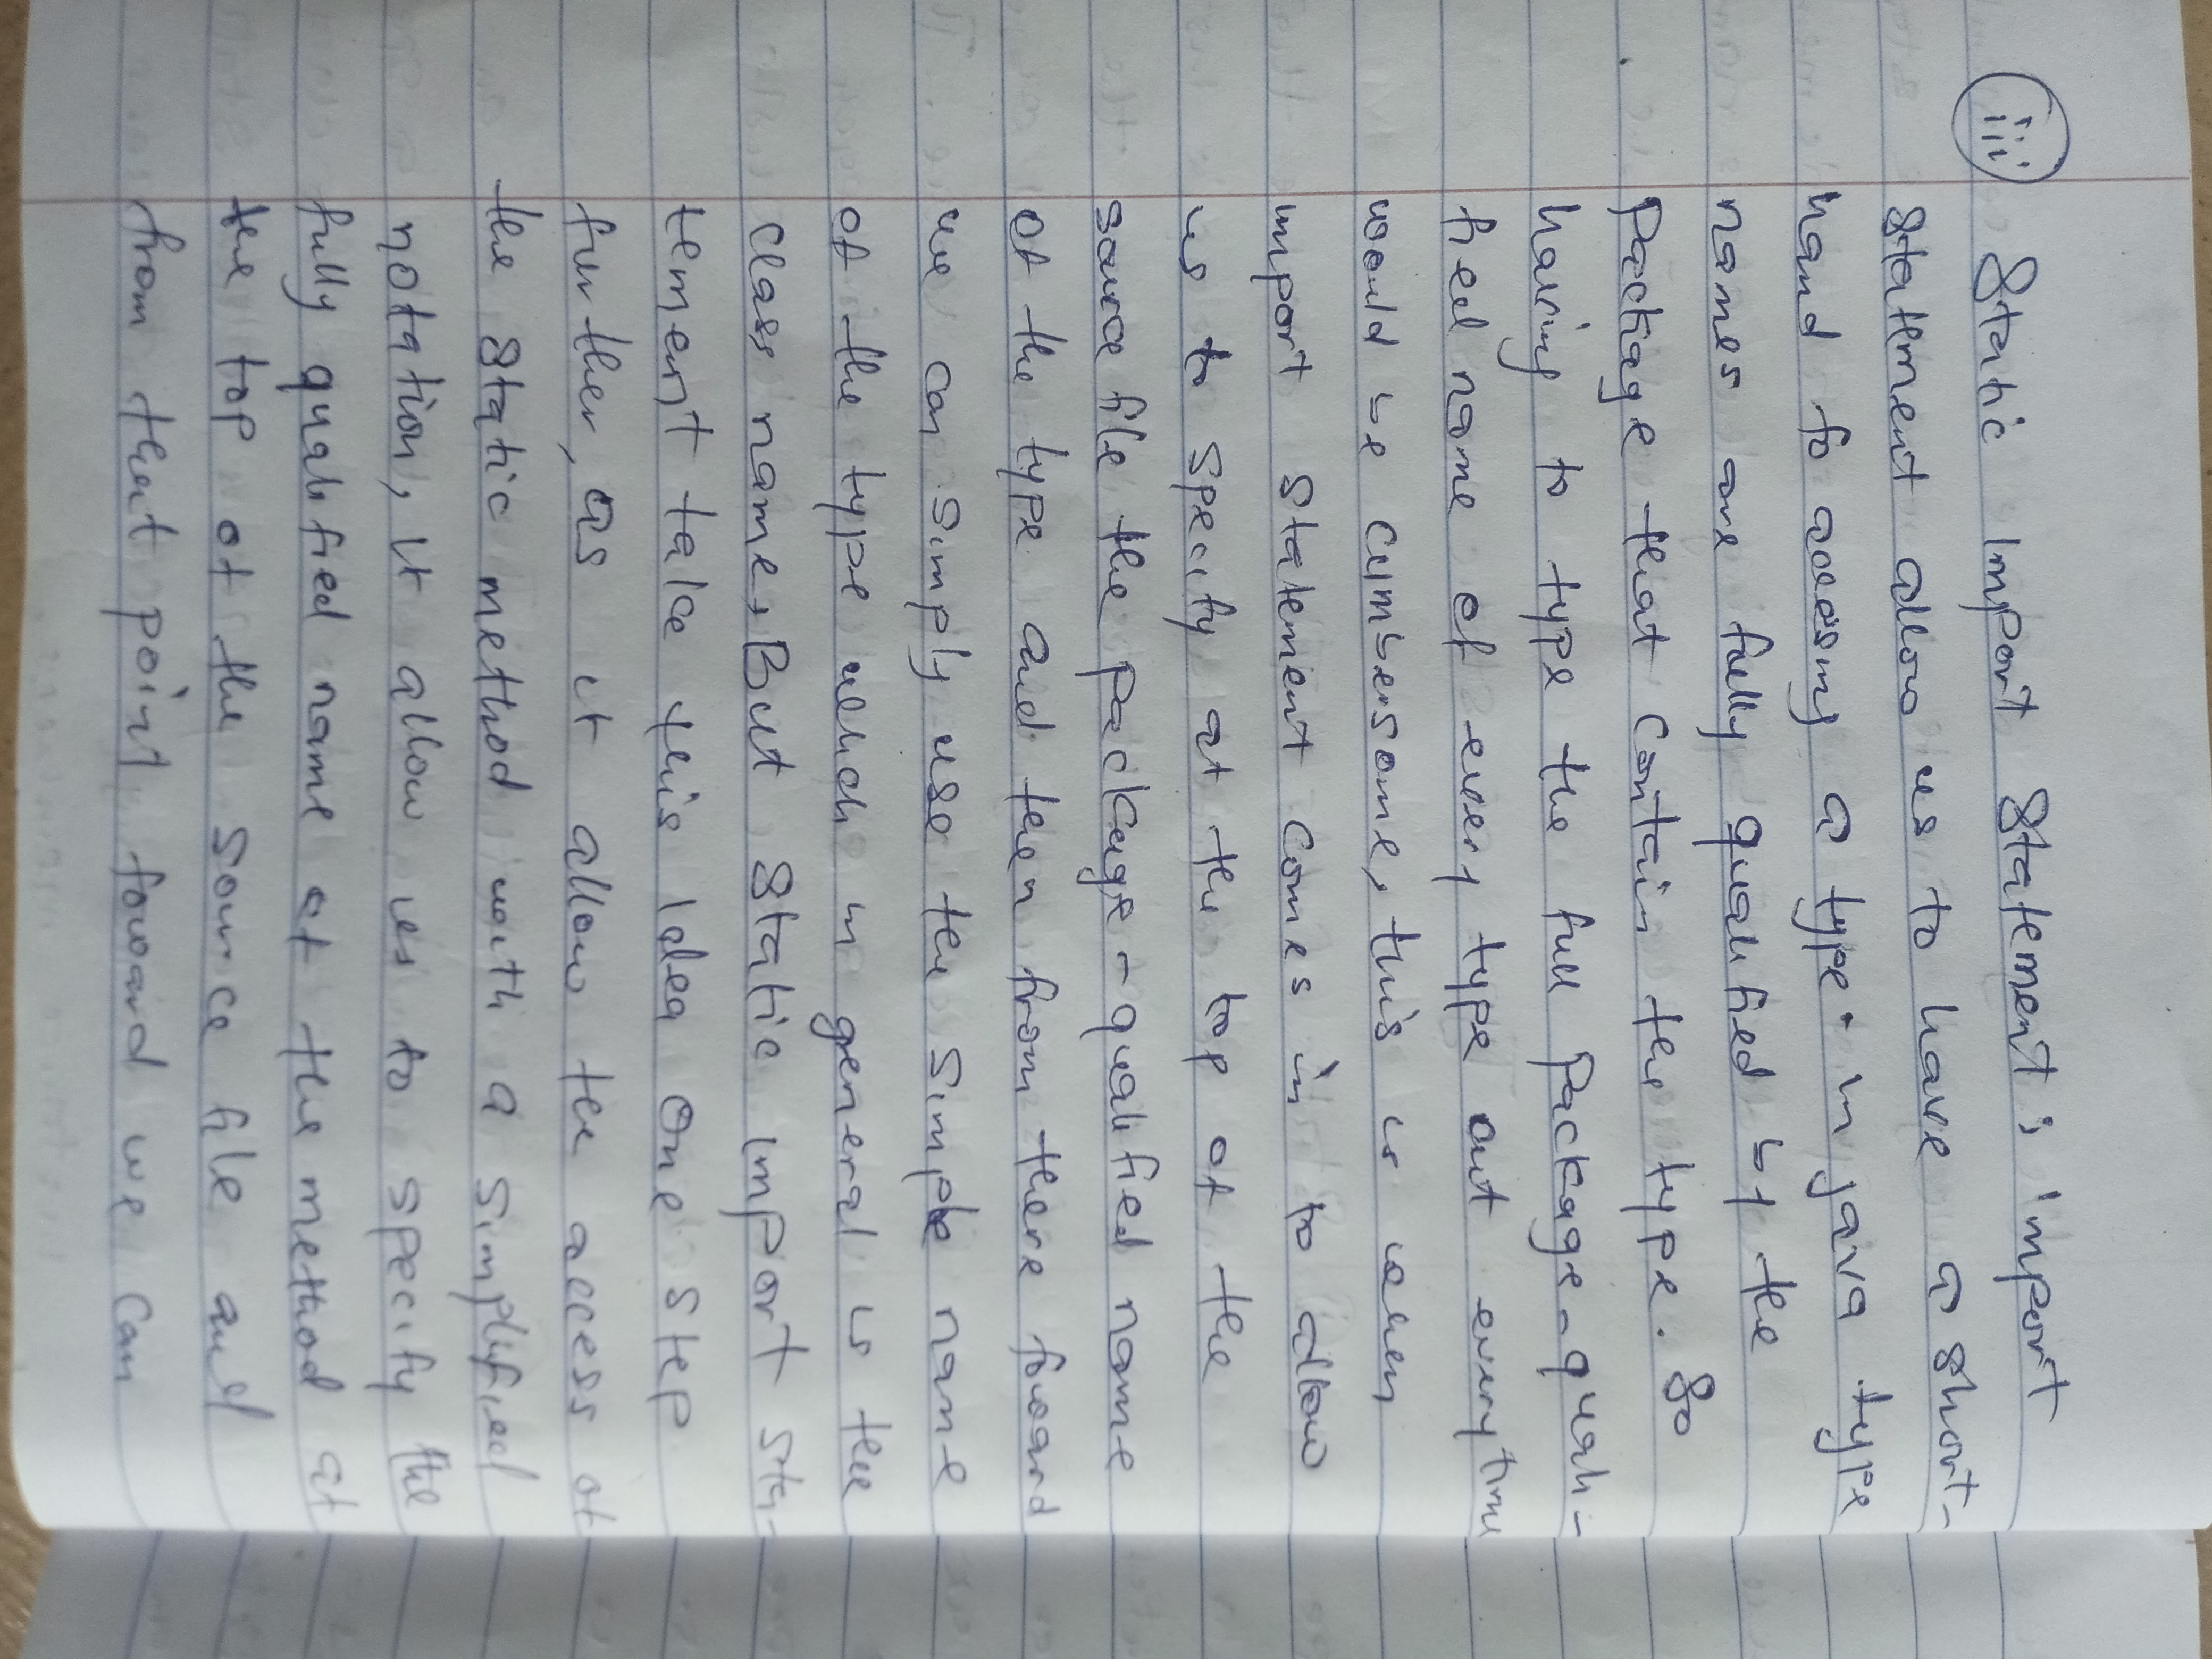 iii Static Import Statement; import
statement allow us to have a short-
hand to accessing a type. in java type
names are fully qualified by the
package that contain the type. So
having to type the full package-quali-
fied name of every type out everytime
would be cumbersome, this is when
import statement comes in to allow
us to specify at the top of the
source file the package-qualified name
of the type and then from there foward
we can simply use the simple name
of the type which in general is the
class name, But static import sta-
tement take this idea one step
further, as it allow the access of
the static method with a simplified
notation, it allow us to specify the
fully qualified name of the method at
the top of the source file and
from that point foward we can